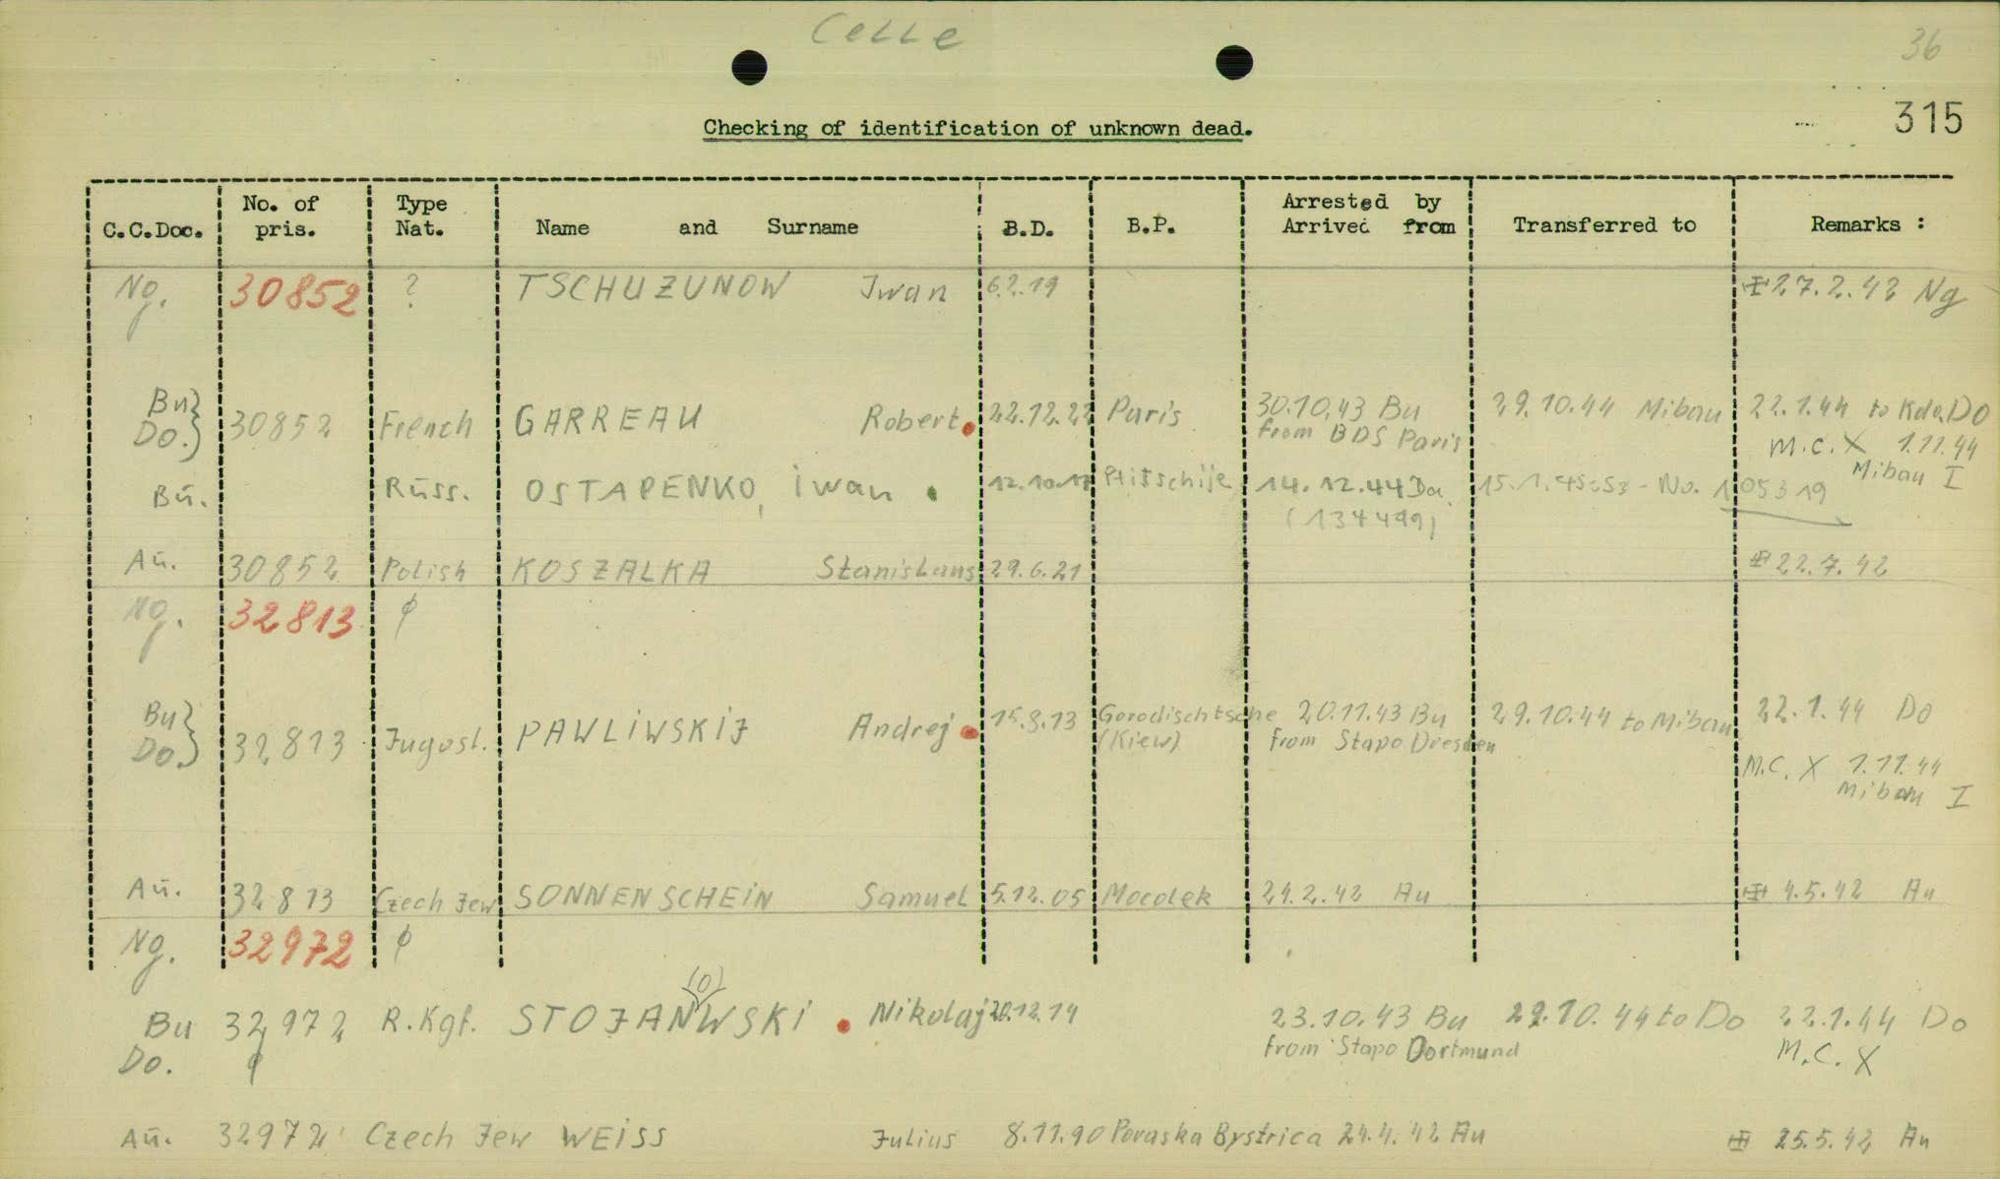 Celle
36
315
Checking of identification of unknown dead.
C.C.Doc. No. of pris. Type Nat. Name and Surname B.D. B.P. Arrested by Arrived from Transferred to Remarks :
Ng. 30852 ? TSCHUZUNOW Iwan 6.2.19 27.2.42 Ng
Bu} 30852 French GARREAU Robert 22.12.22 Paris 30.10.43 Bu 29.10.44 Mibau 22.1.44 to Kdo Do
Do.} from BDS Paris M.C. X 1.11.44
Mibau I
Bu. Russ. OSTAPENKO, Iwan 12.10.17 14.12.44 Da 15.1.45 - No. 105319
(134499)
Au. 30852 Polish KOSZALKA Stanislaus 29.6.21 22.7.42
Ng. 32813 ϕ
Bu} 32813 Jugosl. PAWLIWSKIJ Andrej 15.8.13 Gorodischtsche 20.11.43 Bu 29.10.44 to Mibau 22.1.44 Do
Do.} (Kiew) from Stapo Dresden
M.C. X 1.11.44
Mibau I
Au. 32813 Czech Jew SONNENSCHEIN Samuel 5.12.05 Mocolek 24.2.42 Au 4.5.42 Au
Ng. 32972 ϕ
(0)
Bu 32972 R.Kgf. STOJANWSKI Nikolaj 20.12.14 23.10.43 Bu 29.10.44 to Do 22.1.44 Do
Do. ϕ from Stapo Dortmund M.C. X
Au. 32972 Czech Jew WEISS Julius 8.11.90 Povaska Bystrica 24.4.42 Au 25.5.42 Au